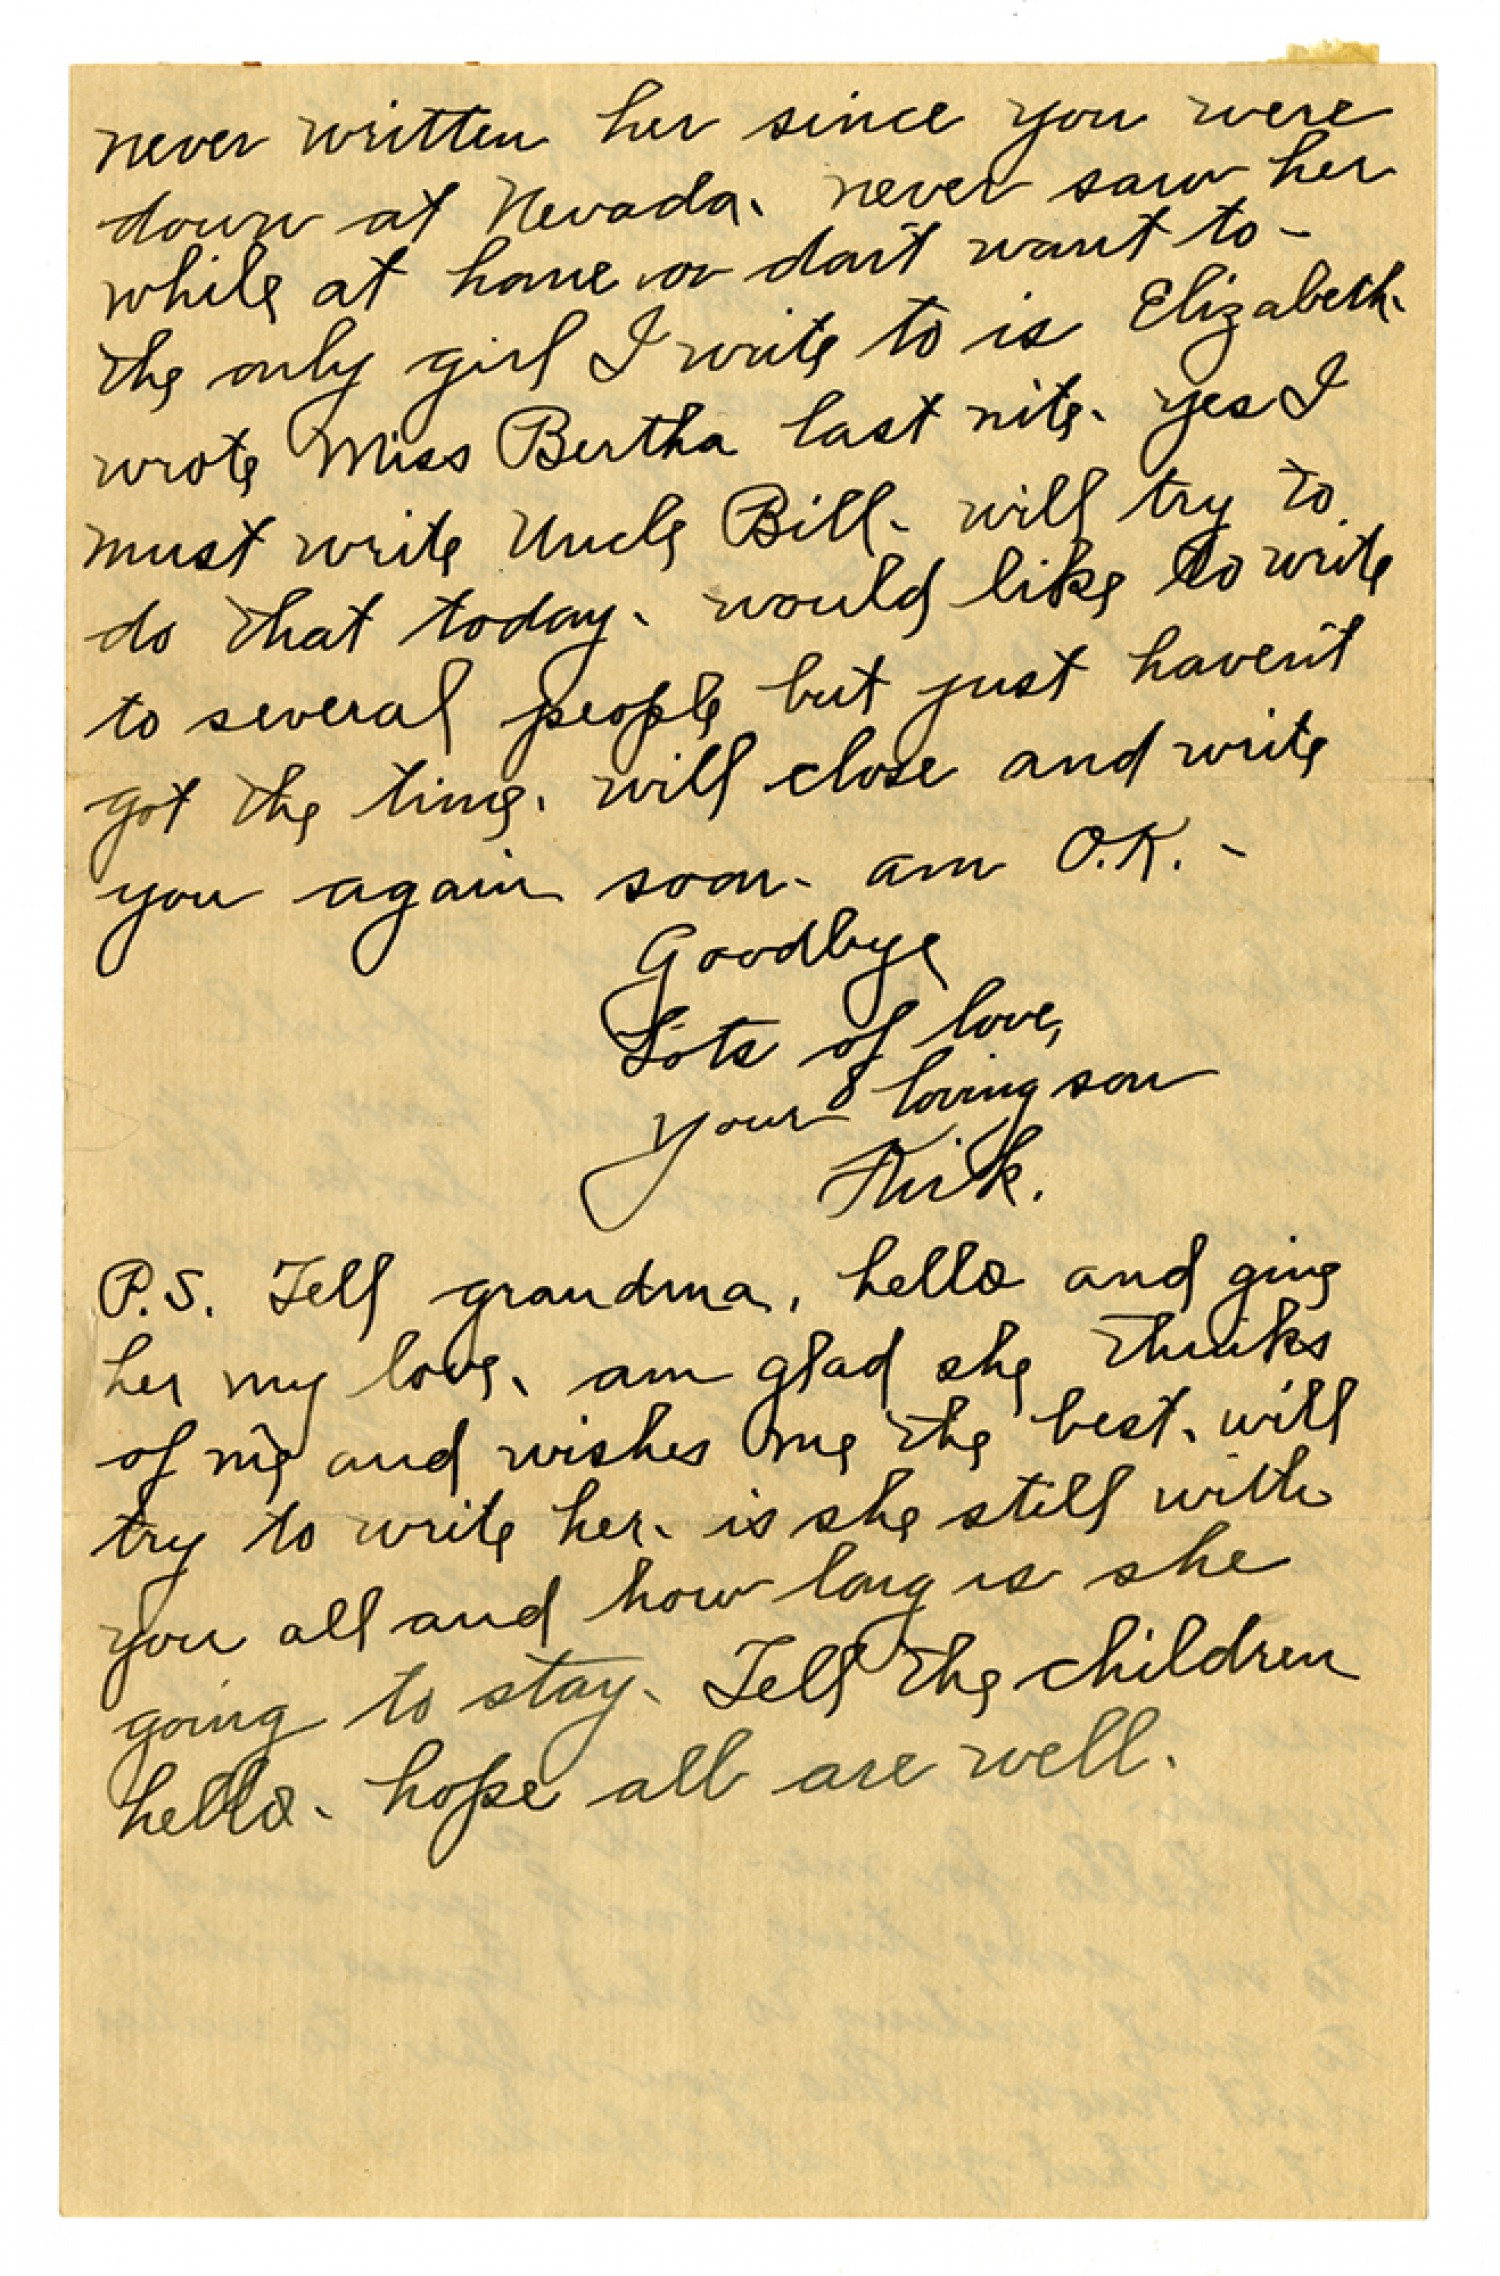 never written her since you were
down at Nevada. never saw her
while at home or don't want to -
the only girl I write to is Elizabeth.
wrote Miss Bertha last nite. yes I
must write Uncle Bill. will try to
do that today. would like to write
to several people but just haven't
got the time. will close and write
you again soon. am O.K. -
Goodbye
Lots of love,
your loving son
Kirk.
P.S. Tell grandma, hello and give
her my love. am glad she thinks
of me and wishes me the best. will
try to write her. is she still with
you all and how long is she
going to stay. Tell the children
hello. hope all are well.